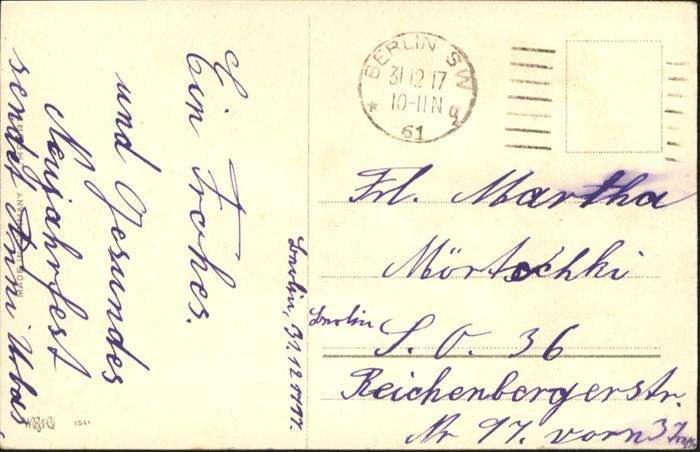 Ein Frohes.
und Gesundes
Neujahrfest
sendet Anni Urban,
Berlin, 31.12.1917.
BERLIN SW
31.12.17
10-11 N
* 61 q
Frl. Martha
Mörtschki
Berlin S. O. 36
Reichenbergerstr.
Nr 97. vorn 3